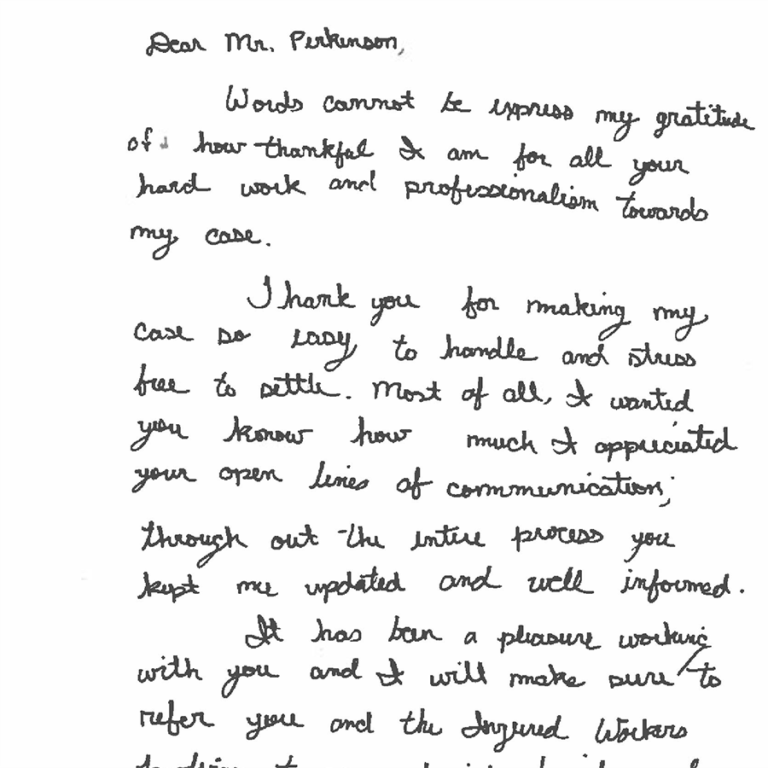 Dear Mr. Perkinson,
Words cannot be express my gratitude
of how thankful I am for all your
hard work and professionalism towards
my case.
Thank you for making my
case so easy to handle and stress
free to settle. Most of all, I wanted
you know how much I appriciated
your open lines of communication;
through out the entire process you
kept me updated and well informed.
It has been a pleasure working
with you and I will make sure to
refer you and the Injured Workers